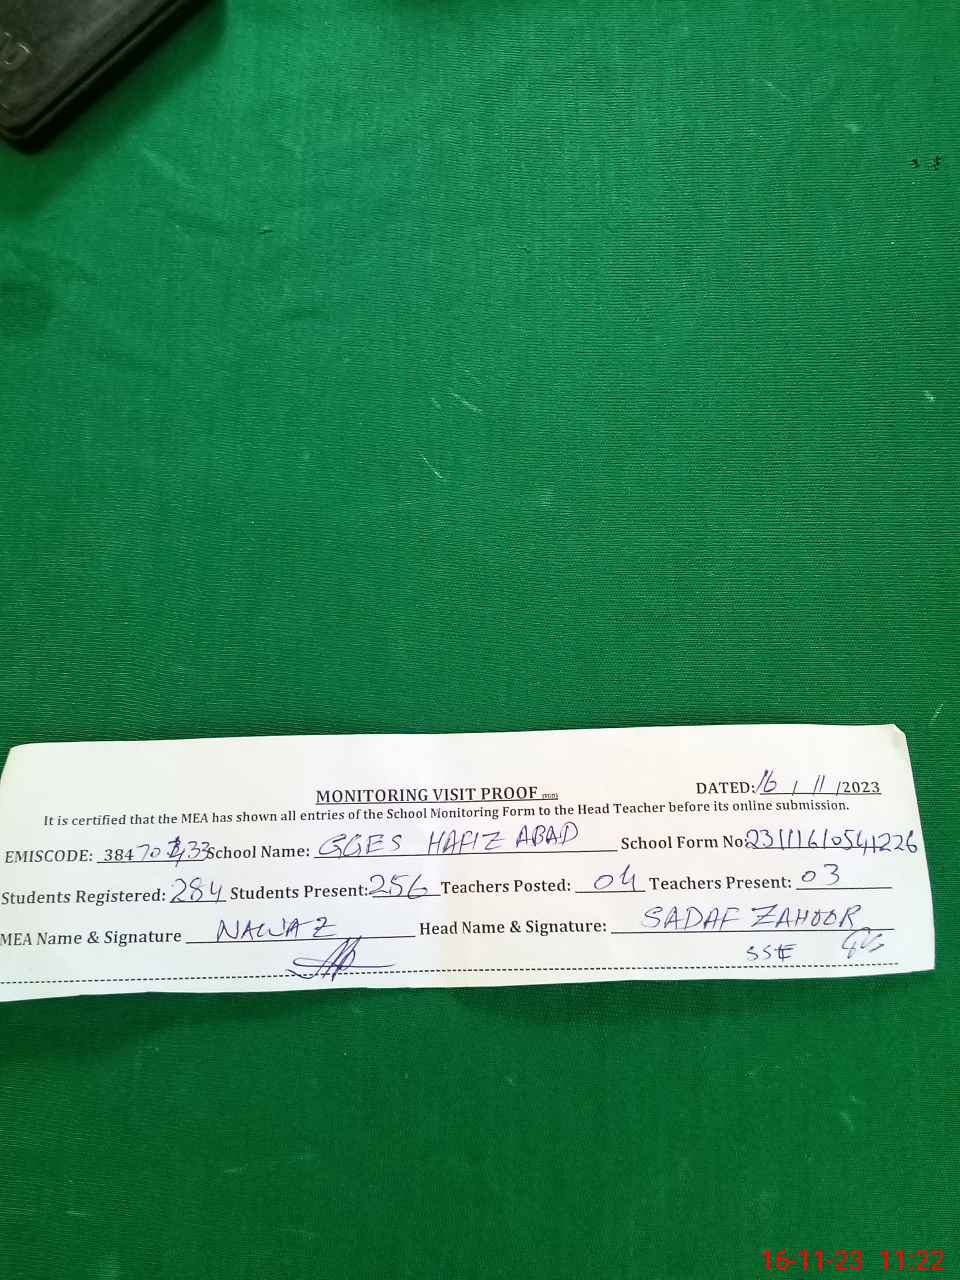 MONITORING VISIT PROOF
DATED: 16 / 11 /2023
It is certified that the MEA has shown all entries of the School Monitoring Form to the Head Teacher before its online submission.
EMISCODE: 38470 School Name: GGES HAFIZ ABAD School Form No: 23111610541226
Students Registered: 284 Students Present: 256 Teachers Posted: 04 Teachers Present: 03
MEA Name & Signature NAWAZ Head Name & Signature: SADAF ZAHOOR
SSE
16-11-23 11:22